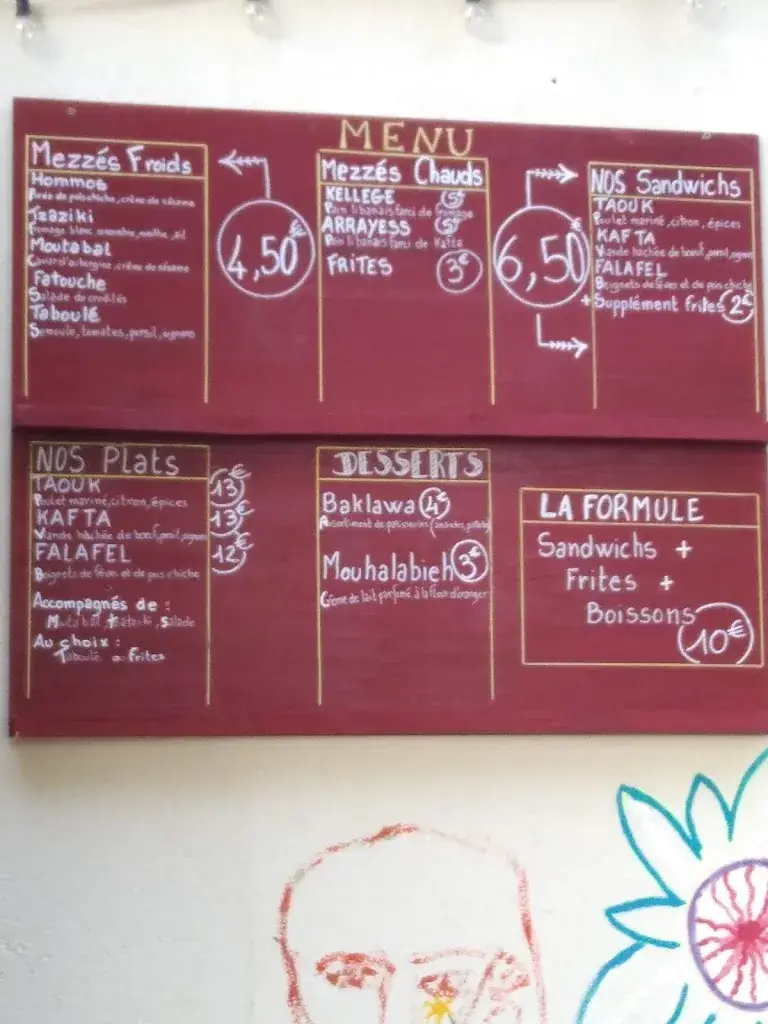 MENU
Mezzés Froids
Hommos
Purée de pois chiche, crème de sésame
Tzaziki
Fromage blanc, concombre, menthe, ail
Moutabal
Caviar d'aubergine, crème de sésame
Fatouche
Salade de crudités
Taboulé
Semoule, tomates, persil, oignons
4,50€
Mezzés Chauds
KELLEGE 5€
Pain libanais farci de fromage
ARRAYESS 5€
Pain libanais farci de Kafta
FRITES 3€
6,50€
NOS Sandwichs
TAOUK
Poulet mariné, citron, épices
KAFTA
Viande hachée de bœuf, persil, oignons
FALAFEL
Beignets de fèves et de pois chiche
+ Supplément frites 2€
NOS Plats
TAOUK 13€
Poulet mariné, citron, épices
KAFTA 13€
Viande hachée de bœuf, persil, oignons
FALAFEL 12€
Beignets de fèves et de pois chiche
Accompagnés de :
Moutabal, Salade
Au choix :
Taboulé ou frites
DESSERTS
Baklawa 4€
Assortiment de patisseries
Mouhalabieh 3€
Crème de lait parfumé à la fleur d'oranger
LA FORMULE
Sandwichs +
Frites +
Boissons
10€